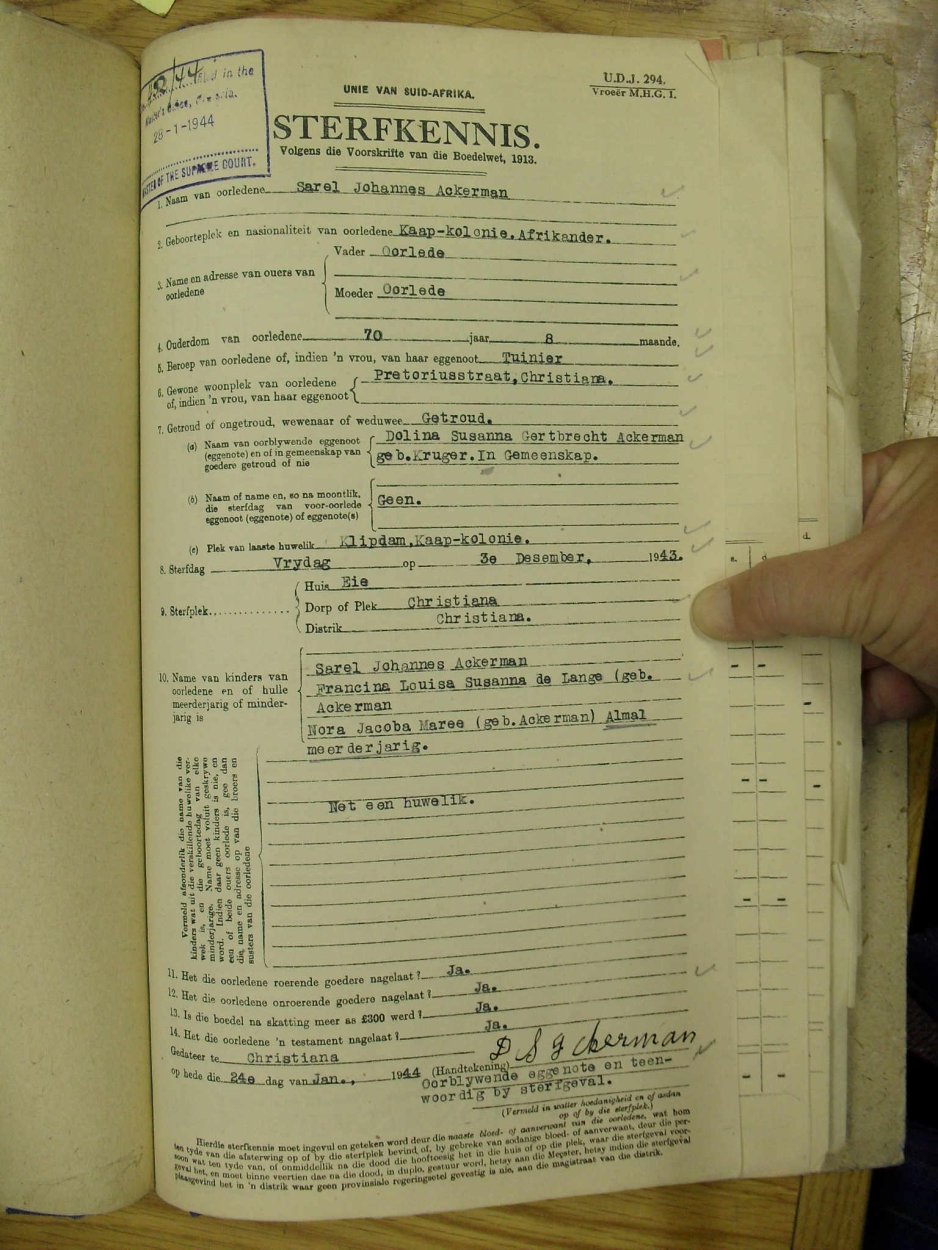 U.D.J. 294.
Vroeër M.H.G. I.
UNIE VAN SUID-AFRIKA.
STERFKENNIS.
Volgens die Voorskrifte van die Boedelwet, 1913.
in the
28-1-1944
OF THE SUPREME COURT.
1. Naam van oorledene Sarel Johannes Ackerman
2. Geboorteplek en nasionaliteit van oorledene Kaap-kolonie. Afrikander.
3. Name en adresse van ouers van oorledene
Vader Oorlede
Moeder Oorlede
4. Ouderdom van oorledene 70 jaar 8 maande.
5. Beroep van oorledene of, indien 'n vrou, van haar eggenoot Tuinier
6. Gewone woonplek van oorledene
of, indien 'n vrou, van haar eggenoot
Pretoriusstraat, Christiana.
7. Getroud of ongetroud, wewenaar of weduwee Getroud.
(a) Naam van oorblywende eggenoot
(eggenote) en of in gemeenskap van
goedere getroud of nie
Dolina Susanna Gertbrecht Ackerman
geb. Kruger. In Gemeenskap.
(b) Naam of name en, so na moontlik,
die sterfdag van voor-oorlede
eggenoot (eggenote) of eggenote(s)
Geen.
(c) Plek van laaste huwelik Klipdam, Kaap-kolonie.
8. Sterfdag Vrydag op 3e Desember, 1943.
9. Sterfplek
Huis Eie
Dorp of Plek Christiana
Distrik Christiana.
10. Name van kinders van
oorledene en of hulle
meerderjarig of minder-
jarig is
Sarel Johannes Ackerman
Francina Louisa Susanna de Lange (geb.
Ackerman
Nora Jacoba Maree (geb. Ackerman) Almal
meerderjarig.
Net een huwelik.
Vermeld afsonderlik die name van die
kinders wat uit die verskillende huwelike ver-
wek is, en die geboortedag van elke
minderjarige. Name moet voluit geskrywe
word. Indien daar geen kinders is nie, en
een of beide ouers oorlede is, gee dan
die name en adresse op van die broers en
susters van die oorledene
11. Het die oorledene roerende goedere nagelaat? Ja.
12. Het die oorledene onroerende goedere nagelaat? Ja.
13. Is die boedel na skatting meer as £300 werd? Ja.
14. Het die oorledene 'n testament nagelaat? Ja.
Gedateer te Christiana
D S G Ackerman
op hede die 24e dag van Jan., 1944 (Handtekening)
Oorblywende eggenote en teen-
woordig by sterfgeval.
(Vermeld in watter hoedanigheid en of aedan
op of by die sterfplek.)
Hierdie sterfkennis moet ingevul en geteken word deur die naaste bloed- of aanverwant van die oorledene, wat hom
ten tyde van die afsterwing op of by die sterfplek bevind of, by gebreke van sodanige bloed- of aanverwant, deur die per-
soon wat ten tyde van, of onmiddellik na die dood die hooftoesig het in die huis of op die plek, waar die sterfgeval voor-
geval het, en moet binne veertien dae na die dood, in duplo, gestuur word, hetsy aan die Meester, hetsy indien die sterfgeval
plaasgevind het in 'n distrik waar geen provinsiale regeringsetel gevestig is nie, aan die magistraat van die distrik.